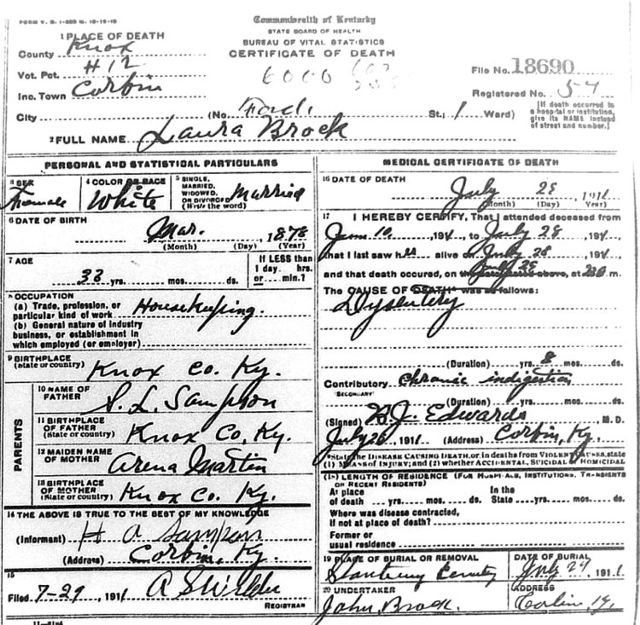 FORM V. S. 1-
Commonwealth of Kentucky
STATE BOARD OF HEALTH
BUREAU OF VITAL STATISTICS
CERTIFICATE OF DEATH
1 PLACE OF DEATH
County Knox
Vot. Pct. #12
Inc. Town Corbin
City
(No. St.; 1 Ward)
6000
File No. 18690
Registered No. 54
[If death occurred in a hospital or institution, give its NAME instead of street and number.]
2 FULL NAME Laura Brock
PERSONAL AND STATISTICAL PARTICULARS
3 SEX
Female
4 COLOR OR RACE
White
5 SINGLE, MARRIED, WIDOWED, OR DIVORCED
(Write the word)
Married
6 DATE OF BIRTH
Mar. 1878
(Month) (Day) (Year)
7 AGE
33 yrs. mos. ds.
If LESS than
1 day, hrs.
or min.?
8 OCCUPATION
(a) Trade, profession, or
particular kind of work Housekeeping.
(b) General nature of industry
business, or establishment in
which employed (or employer)
9 BIRTHPLACE
(State or country) Knox Co. Ky.
PARENTS
10 NAME OF
FATHER S. L. Sampson
11 BIRTHPLACE
OF FATHER
(State or country) Knox Co. Ky.
12 MAIDEN NAME
OF MOTHER Arena Martin
13 BIRTHPLACE
OF MOTHER
(State or country) Knox Co. Ky.
14 THE ABOVE IS TRUE TO THE BEST OF MY KNOWLEDGE
(Informant) H A Sampson
(Address) Corbin, Ky.
15
Filed 7-29, 1911 A S
REGISTRAR
MEDICAL CERTIFICATE OF DEATH
16 DATE OF DEATH
July 28, 1911
(Month) (Day) (Year)
17 I HEREBY CERTIFY, That I attended deceased from
June 10, 1911, to July 28, 1911,
that I last saw h alive on July 28, 1911,
and that death occured, on the date stated above, at m.
The CAUSE OF DEATH was as follows:
Dysentery
(Duration) yrs. 8 mos. ds.
Contributory chronic indigestion
SECONDARY
(Duration) yrs. mos. ds.
(Signed) J. Edwards M. D.
July 1911 (Address) Corbin, Ky.
*State the DISEASE CAUSING DEATH, or, in deaths from VIOLENT CAUSES, state
(1) MEANS OF INJURY; and (2) whether ACCIDENTAL, SUICIDAL or HOMICIDAL
18 LENGTH OF RESIDENCE (FOR HOSPITALS, INSTITUTIONS, TRANSIENTS
OR RECENT RESIDENTS)
At place
of death yrs. mos. ds. In the State yrs. mos. ds.
Where was disease contracted,
if not at place of death?
Former or
usual residence
19 PLACE OF BURIAL OR REMOVAL
Cemetery
DATE OF BURIAL
July 29 1911
20 UNDERTAKER
John Brock.
ADDRESS
Corbin Ky.